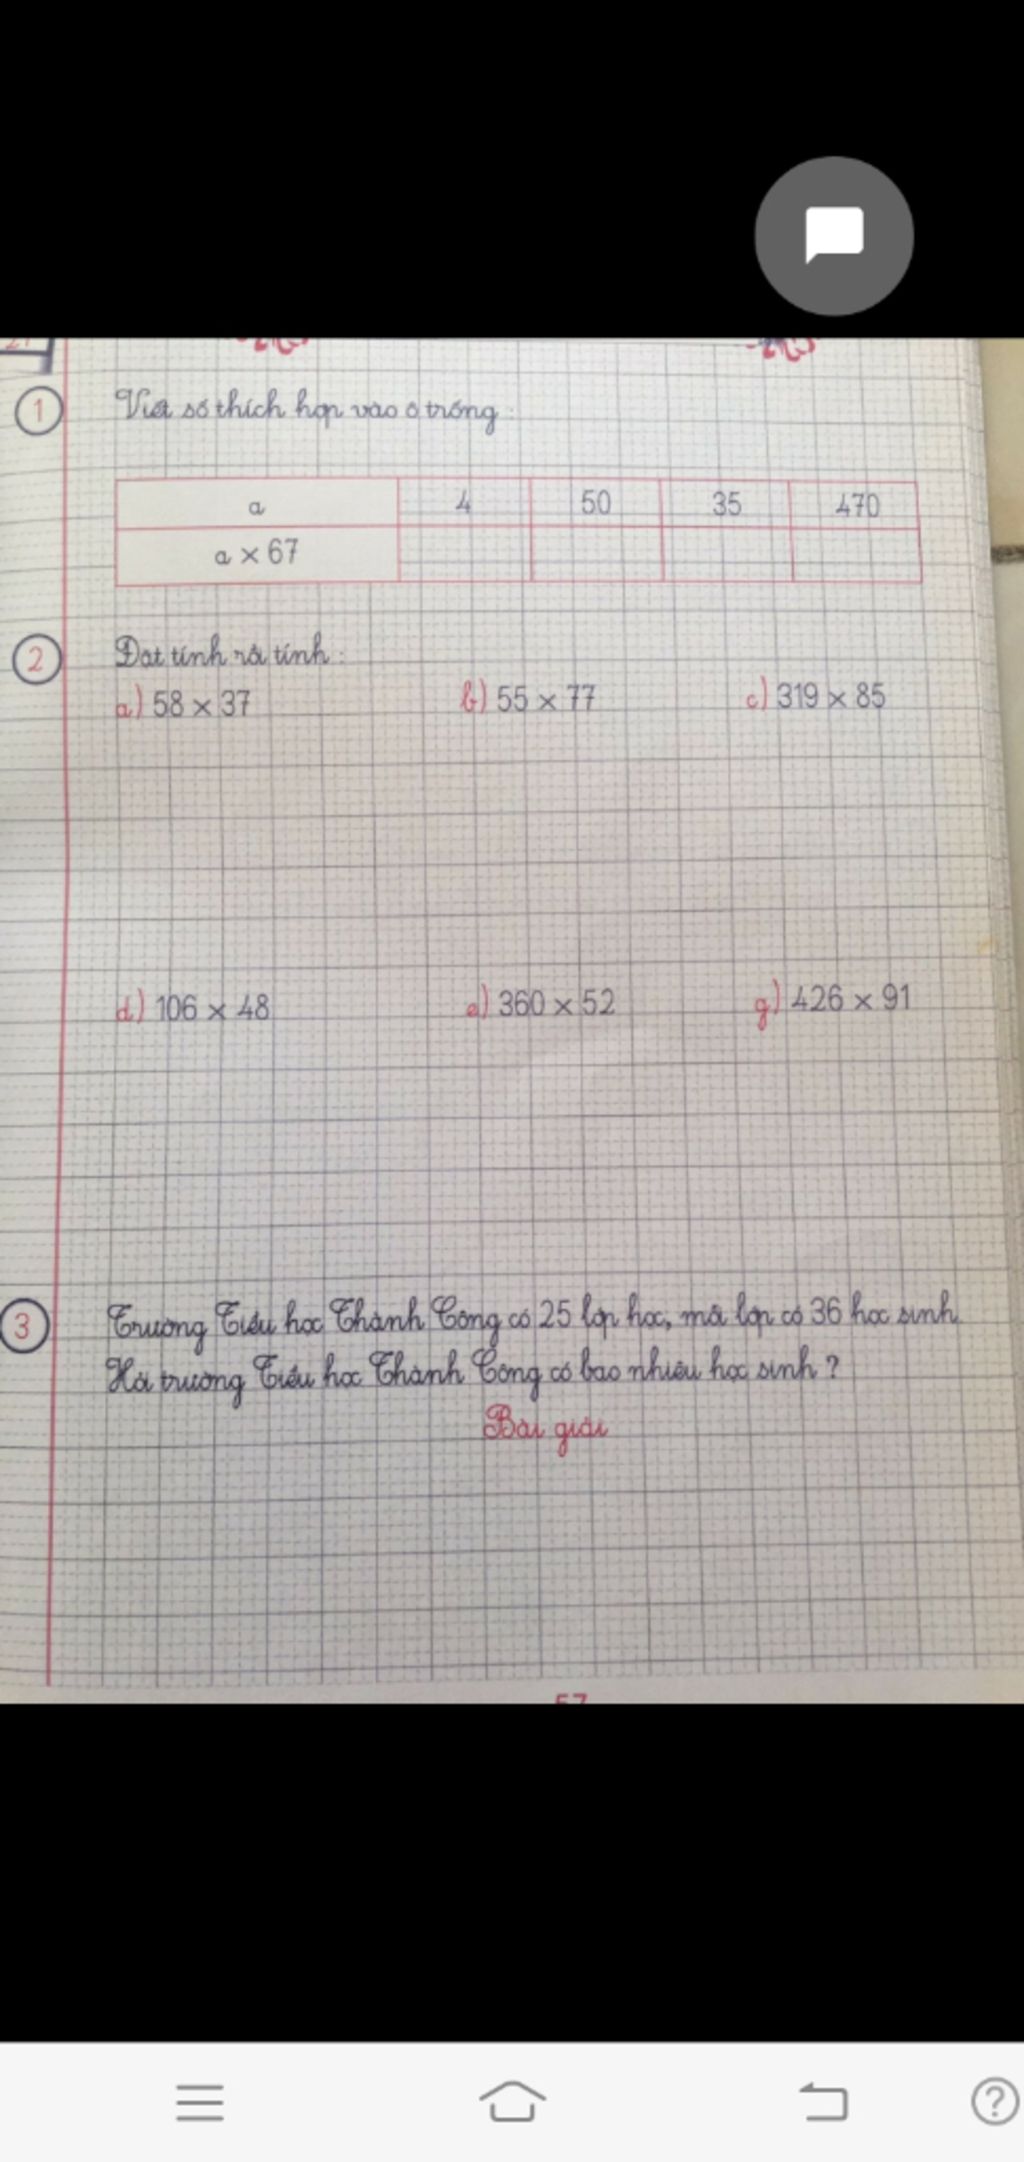 1
Viết số thích hợp vào ô trống :
a 4 50 35 470
a × 67
2
Đặt tính rồi tính :
a) 58 × 37 b) 55 × 77 c) 319 × 85
d) 106 × 48 e) 360 × 52 g) 426 × 91
3
Trường Tiểu học Thành Công có 25 lớp học, mỗi lớp có 36 học sinh.
Hỏi trường Tiểu học Thành Công có bao nhiêu học sinh ?
Bài giải
57
?